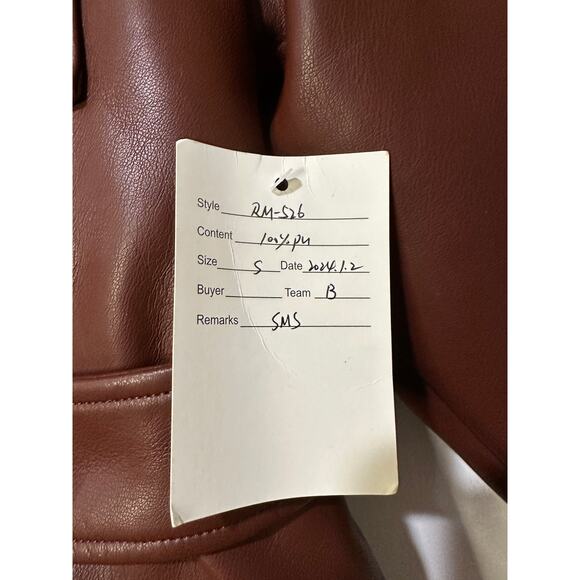 Style RM-526
Content 100% PU
Size S Date 2024.1.2
Buyer Team B
Remarks SMS